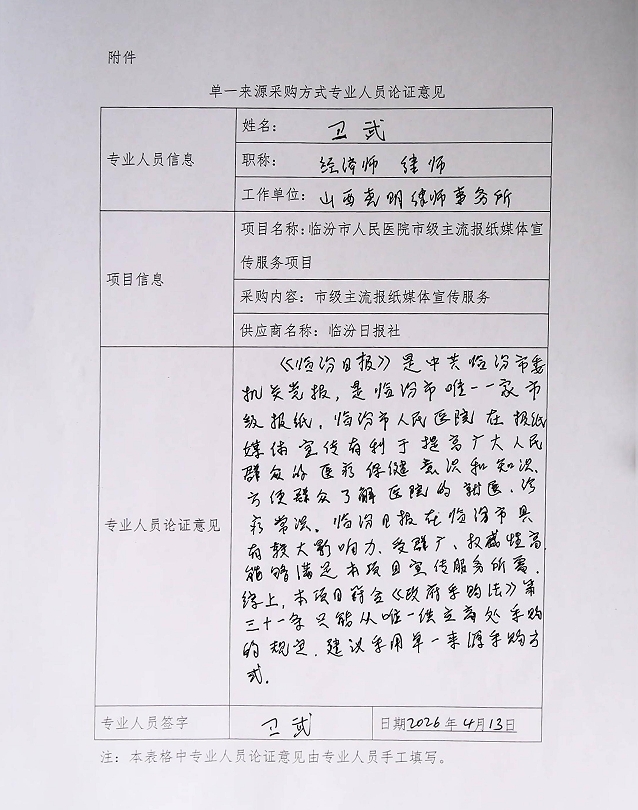 附件
单一来源采购方式专业人员论证意见
专业人员信息
姓名： 卫武
职称： 经济师 律师
工作单位：山西尧明律师事务所
项目信息
项目名称：临汾市人民医院市级主流报纸媒体宣
传服务项目
采购内容：市级主流报纸媒体宣传服务
供应商名称：临汾日报社
专业人员论证意见
《临汾日报》是中共临汾市委
机关党报，是临汾市唯一一家市
级报纸。临汾市人民医院在报纸
媒体宣传有利于提高广大人民
群众的医疗保健意识和知识，
方便群众了解医院的就医、诊
疗常识。临汾日报在临汾市具
有较大影响力、受群广、权威性高，
能够满足本项目宣传服务所需。
综上，本项目符合《政府采购法》第
三十一条只能从唯一供应商处采购
的规定，建议采用单一来源采购方
式。
专业人员签字
卫武
日期2026年4月13日
注：本表格中专业人员论证意见由专业人员手工填写。